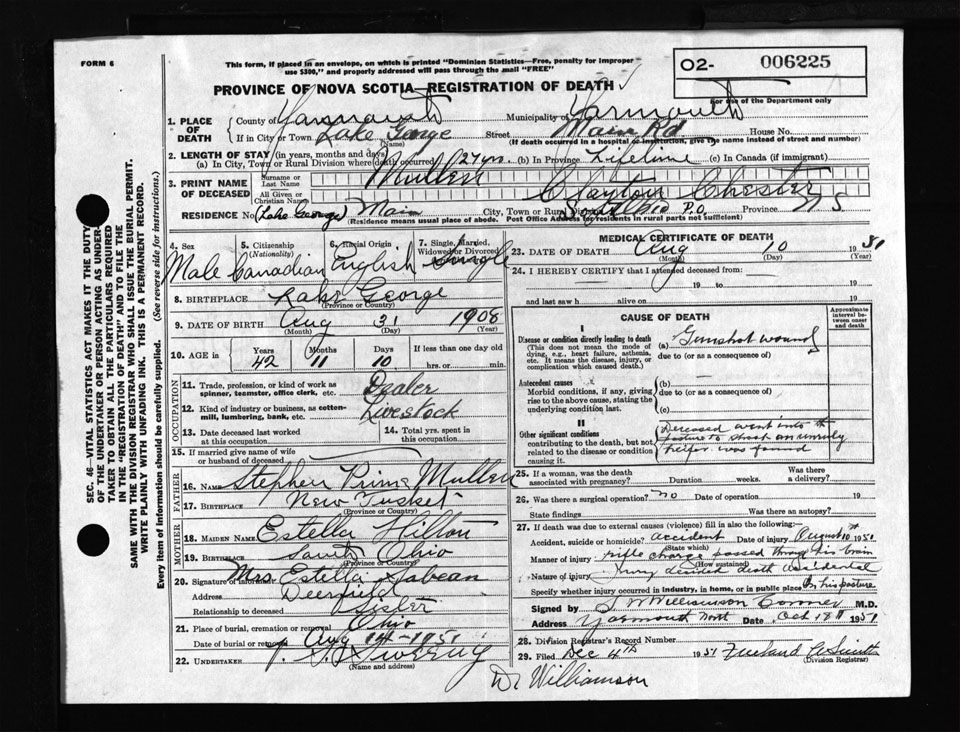 FORM 6
This form, if placed in an envelope, on which is printed "Dominion Statistics—Free, penalty for improper
use $300," and properly addressed will pass through the mail "FREE"
O2- 006225
For use of the Department only
PROVINCE OF NOVA SCOTIA—REGISTRATION OF DEATH
1. PLACE OF DEATH
County of Yarmouth Municipality of Yarmouth
If in City or Town Lake George (Name) Street Main Rd House No.
(If death occurred in a hospital or institution, give the name instead of street and number)
2. LENGTH OF STAY (in years, months and days)
(a) In City, Town or Rural Division where death occurred 27 yrs. (b) In Province Lifetime (c) In Canada (if immigrant)
3. PRINT NAME OF DECEASED
Surname or Last Name Mullen
All Given or Christian Names Clayton Chester
RESIDENCE No. (Lake George) Main City, Town or Rural Ohio P.O. Province N S
(Residence means usual place of abode. Post Office Address in rural parts is not sufficient.)
4. Sex Male
5. Citizenship (Nationality) Canadian
6. Racial Origin English
7. Single, Married, Widowed or Divorced Single
8. BIRTHPLACE Lake George
(Province or Country)
9. DATE OF BIRTH Aug 31 1908
(Month) (Day) (Year)
10. AGE in Years Months Days If less than one day old
42 11 10 hrs. or min.
OCCUPATION
11. Trade, profession, or kind of work as spinner, teamster, office clerk, etc. Dealer
12. Kind of industry or business, as cotton-mill, lumbering, bank, etc. Livestock
13. Date deceased last worked at this occupation
14. Total yrs. spent in this occupation
15. If married give name of wife or husband of deceased
FATHER
16. NAME Stephen Prime Mullen
17. BIRTHPLACE New Tusket
(Province or Country)
MOTHER
18. MAIDEN NAME Estella Hilton
19. BIRTHPLACE South Ohio
(Province or Country)
20. Signature of informant Mrs. Estella Sabean
Address Deerfield
Relationship to deceased Sister
21. Place of burial, cremation or removal Ohio
Date of burial or removal Aug 14-1951
22. UNDERTAKER Sweeny
(Name and address)
MEDICAL CERTIFICATE OF DEATH
23. DATE OF DEATH Aug 10 1951
(Month) (Day) (Year)
24. I HEREBY CERTIFY that I attended deceased from
19 to 19
and last saw h alive on 19
CAUSE OF DEATH
Approximate interval between onset and death
I
Disease or condition directly leading to death
(This does not mean the mode of dying, e.g., heart failure, asthenia, etc. It means the disease, injury, or complication which caused death.)
(a) Gunshot wound
due to (or as a consequence of)
Antecedent causes
Morbid conditions, if any, giving rise to the above cause, stating the underlying condition last.
(b)
due to (or as a consequence of)
(c)
II
Other significant conditions
contributing to the death, but not related to the disease or condition causing it.
Deceased went into the
pasture to shoot an unruly
heifer was found
25. If a woman, was the death associated with pregnancy? Duration weeks. Was there a delivery?
26. Was there a surgical operation? no Date of operation 19
State findings Was there an autopsy?
27. If death was due to external causes (violence) fill in also the following:—
Accident, suicide or homicide? accident Date of injury August 10th 1951
(State which)
Manner of injury rifle charge passed through his brain
(How sustained)
Nature of injury Jury decided death accidental
Specify whether injury occurred in industry, in home, or in public place In his pasture
Signed by Williamson Coroner M.D.
Address Yarmouth North Date Oct 18th 1951
28. Division Registrar's Record Number
29. Filed Dec 4th 1951 Smith
(Division Registrar)
Dr Williamson
SEC. 46—VITAL STATISTICS ACT MAKES IT THE DUTY
OF THE UNDERTAKER OR PERSON ACTING AS UNDER-
TAKER TO OBTAIN ALL THE PARTICULARS REQUIRED
IN THE "REGISTRATION OF DEATH" AND TO FILE THE
SAME WITH THE DIVISION REGISTRAR WHO SHALL ISSUE THE BURIAL PERMIT.
WRITE PLAINLY WITH UNFADING INK. THIS IS A PERMANENT RECORD.
Every item of information should be carefully supplied. (See reverse side for instructions.)